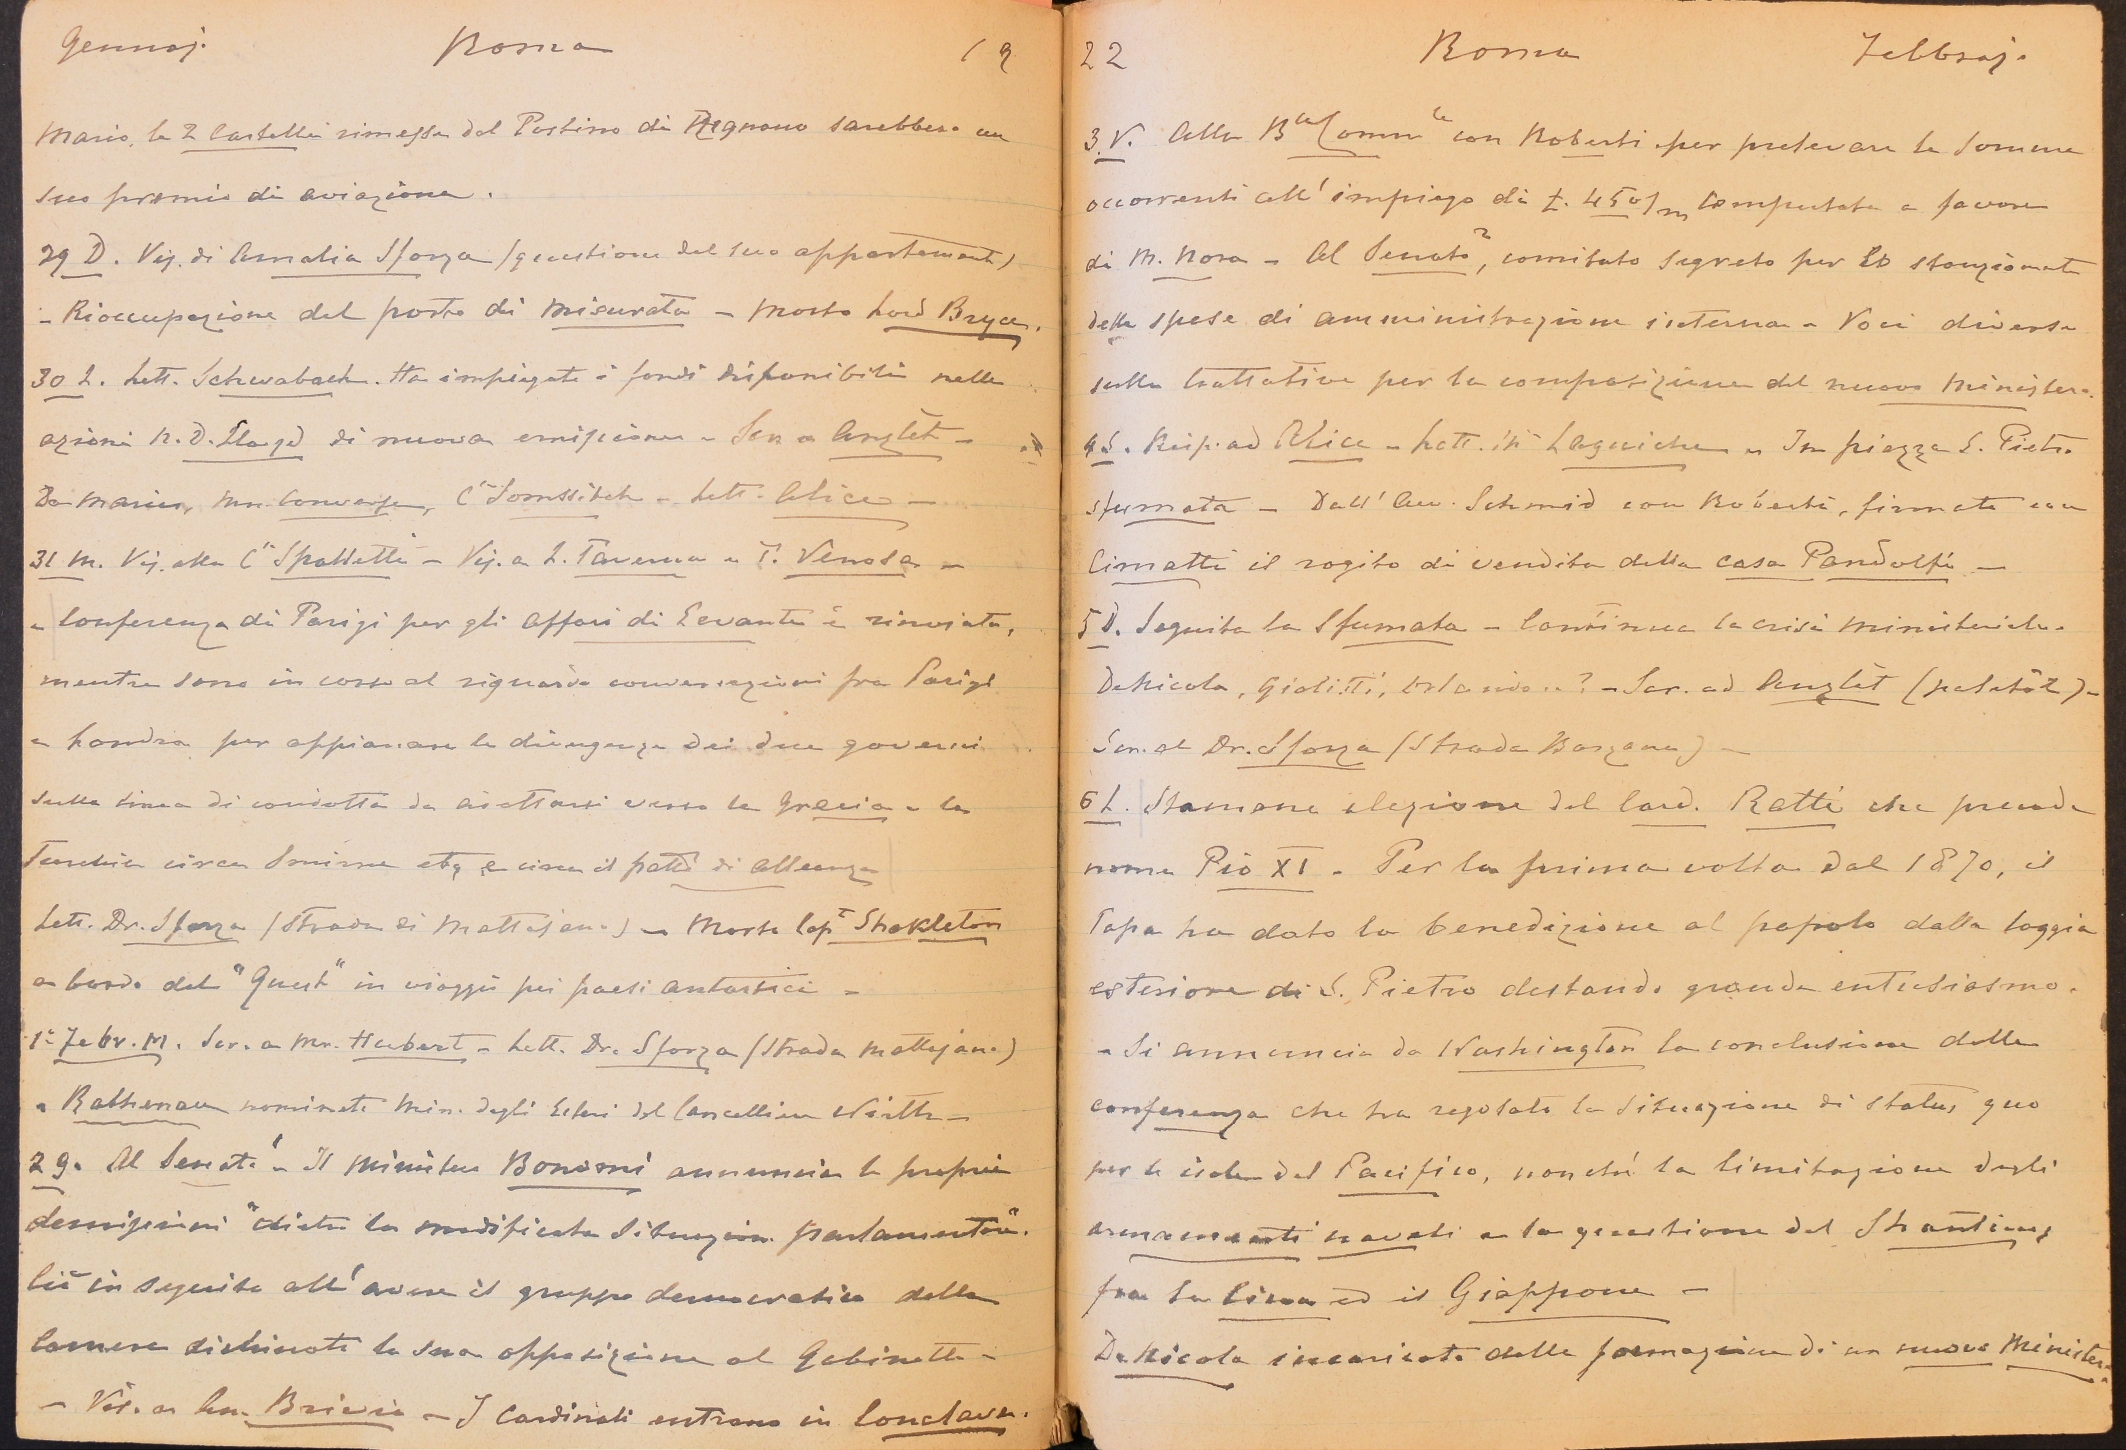 Gennaj. Roma 19
Mario, le 2 Cartelle rimesse dal Postino di Regnano sarebbero un
suo premio di aviazione.
29 D. Vis. di Amalia Sforza (questione del suo appartamento)
- Rioccupazione del porto di Misurata - Morto Lord Bryce.
30 L. Lett. Schwabach. Ha impiegato i fondi disponibili nelle
azioni N.D. Lloyd di nuova emissione - Scr. a Anglet -
Da Mario, Mrs Converse, Cssa Somssitch - Lett. Alice -
31 M. Vis. alla Cssa Spalletti - Vis. a L. Taverna e T. Venosa -
- Conferenza di Parigi per gli affari di Levante è rinviata,
mentre sono in corso al riguardo conversazioni fra Parigi
e Londra per appianare le divergenze dei due governi
sulla linea di condotta da adottarsi verso la Grecia e la
Turchia circa Smirne etc e circa il patto di alleanza
Lett. Dr. Sforza (Strada di Mattajano) - Morto Capt Shakleton
a bordo del "Quest" in viaggio pei paesi antartici -
1º Febr. M. Scr. a Mr. Hubert - Lett. Dr. Sforza (Strada Mattejano)
- Rathenau nominato Min. degli Esteri dal Cancelliere Wirth -
2 G. Al Senato - Il Ministero Bonomi annuncia le proprie
demissioni "dietro la modificata situazione parlamentare".
Ciò in seguito all'avere il gruppo democratico della
Camera dichiarato la sua opposizione al Gabinetto -
- Vis. a Brivio - I Cardinali entrano in Conclave.
22 Roma Febbraj.
3 V. Alla Bca Comm.le con Roberti per prelevare le somme
occorrenti all'impiego di £. 450/m computate a favore
di M. Nora - Al Senato, comitato segreto per lo stanziamento
delle spese di amministrazione interna - Voci diverse
sulle trattative per la composizione del nuovo Ministero.
4 S. Risp. ad Alice - Lett. di Laguiche - In piazza S. Pietro
sfumata - Dall'Avv. Schmid con Roberti, firmato con
Cimatti il rogito di vendita della casa Pandolfi -
5 D. Seguita la Sfumata - Continua la crisi ministeriale.
De Nicola, Giolitti, Orlando..? - Scr. ad Anglet (paletôt) -
Scr. al Dr. Sforza (Strada Barzana) -
6 L. Stamane elezione del Card. Ratti che prende
nome Pio XI - Per la prima volta dal 1870, il
Papa ha dato la benedizione al popolo dalla loggia
esteriore di S. Pietro destando grande entusiasmo.
- Si annuncia da Washington la conclusione della
conferenza che ha regolato la situazione di status quo
per le isole del Pacifico, nonché la limitazione degli
armamenti navali e la questione del Shantung
fra la Cina ed il Giappone -
De Nicola incaricato della formazione di un nuovo Ministero.